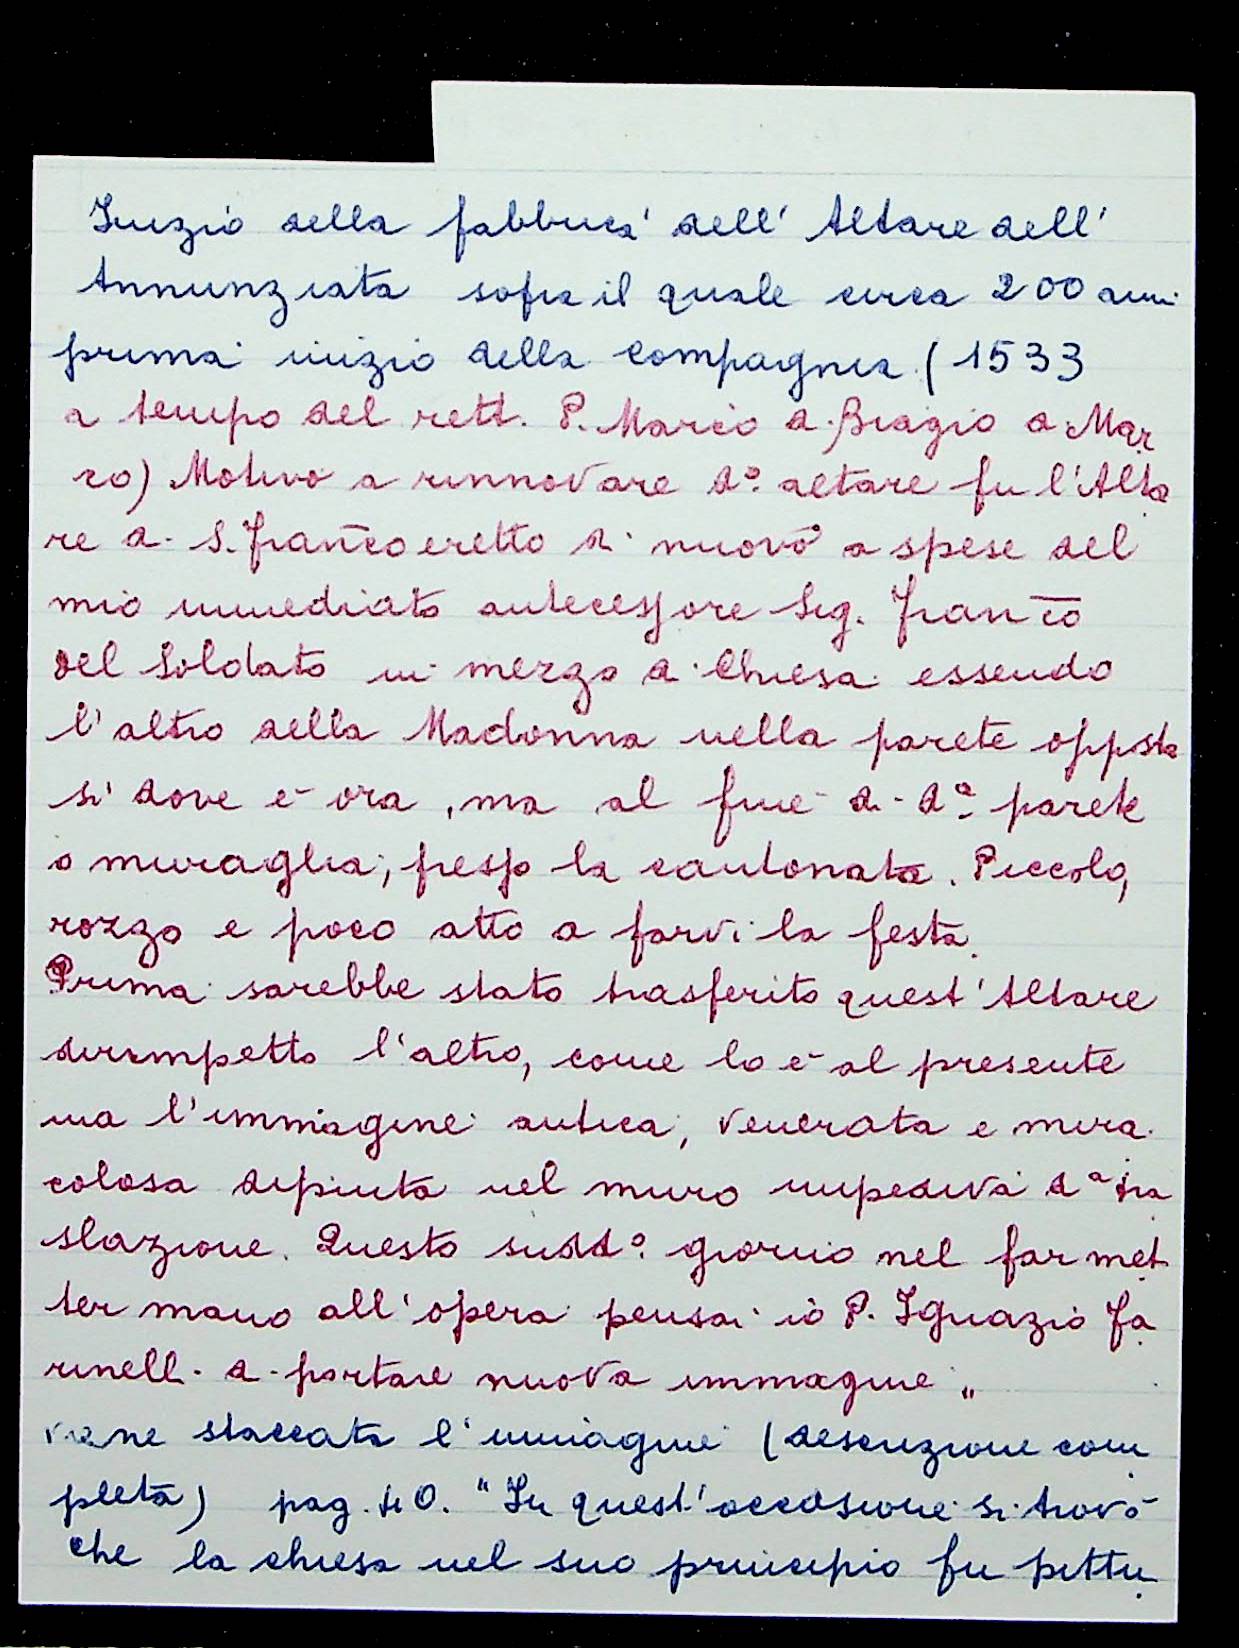 Inizio della fabbrica dell' Altare dell'
Annunziata sopra il quale circa 200 anni
prima inizio della Compagnia (1533
a tempo del rett. P. Marco di Biagio di Mar
co) Motivo a rinnovare dº altare fu l'Alta
re di S. Franco eretto di nuovo a spese del
mio immediato antecessore Sig. Franco
del Soldato in mezzo di Chiesa essendo
l'altro della Madonna nella parete oppsta
sì dove è ora, ma al fine di dª parete
o muraglia, presso la cantonata. Piccolo,
rozzo e poco atto a farvi la festa.
Prima sarebbe stato trasferito quest'Altare
dirimpetto l'altro, come lo è al presente
ma l'immagine antica, venerata e mira
colosa dipinta nel muro impediva dª tra
slazione. Questo suddº giorno nel far met
ter mano all'opera pensai io P. Ignazio Fa
rinelli di portare nuova immagine "
viene staccata l'immagine (descrizione com
pleta) pag. 40. "In quest'occasione si trovò
che la chiesa nel suo principio fu pittu